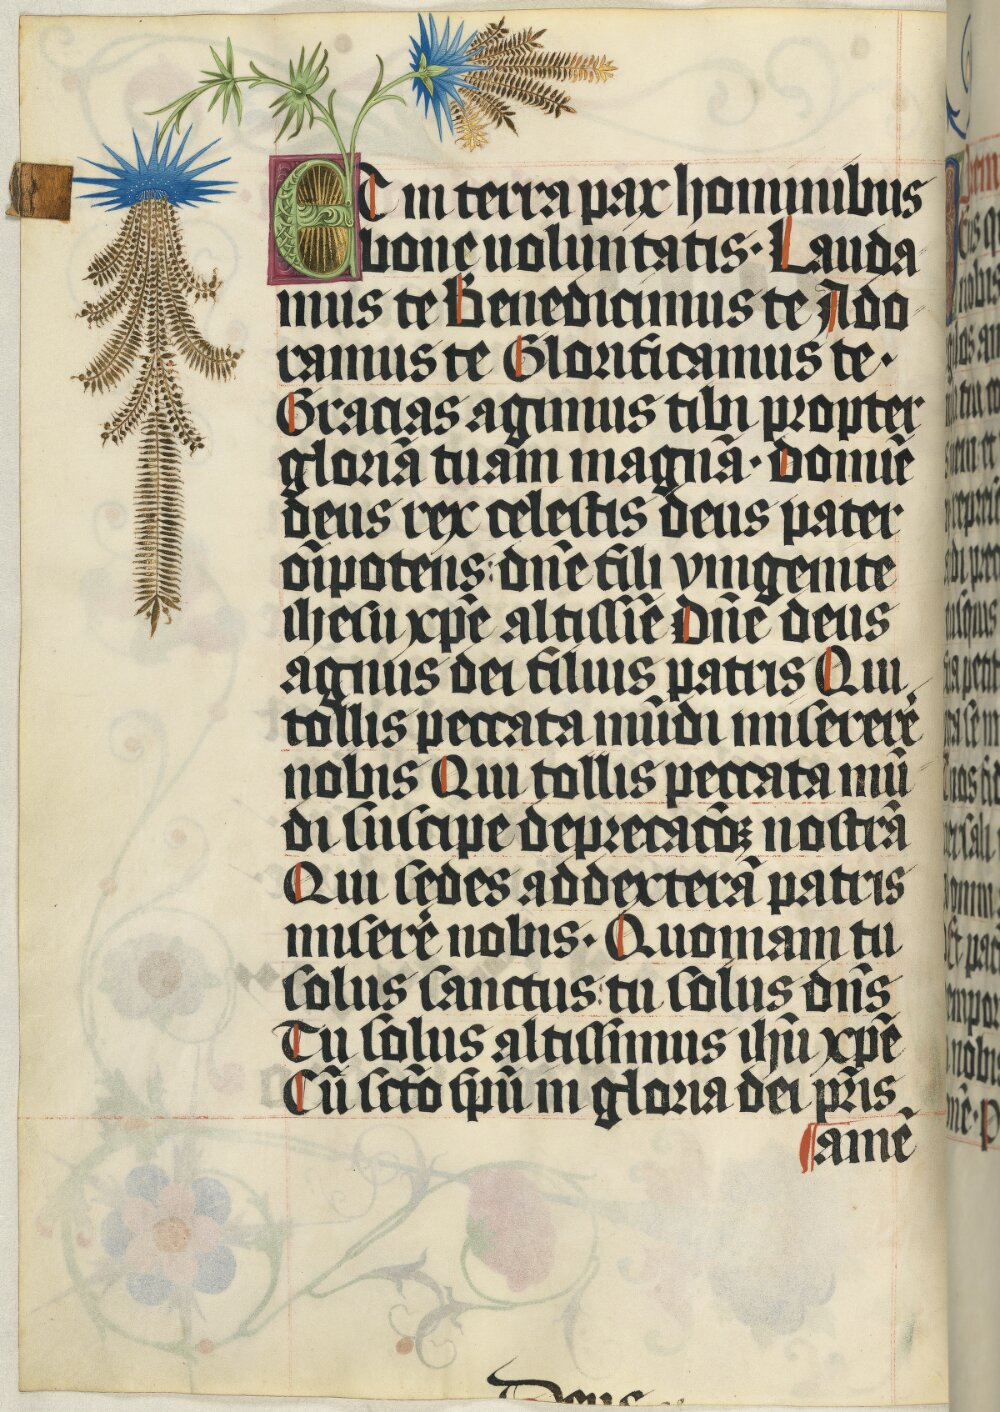 Et in terra pax hominibus
bone uoluntatis· Lauda
mus te Benedicimus te Ado
ramus te Glorificamus te·
Gracias agimus tibi propter
gloriā tuam magnā· domīe
deus rex celestis deus pater
oīpotens: dn̄e fili vnigenite
ihesu xp̄e altissīe Dn̄e deus
agnus dei filius patris Qui
tollis peccata mūdi miserere
nobis Qui tollis peccata mū
di suscipe deprecacōꝫ nostrā
Qui sedes ad dexterā patris
miserē nobis· Quoniam tu
solus sanctus: tu solus dn̄s
Tu solus altissimus ihū xp̄e
Cū sctō sp̄u in gloria dei pr̄is
amē
Deus